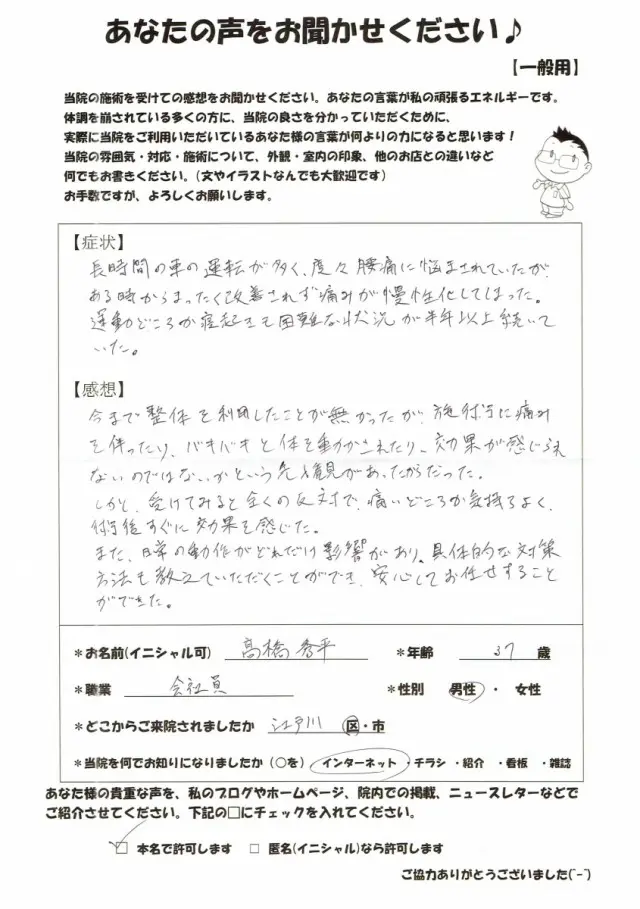 あなたの声をお聞かせください♪
【一般用】
当院の施術を受けての感想をお聞かせください。あなたの言葉が私の頑張るエネルギーです。
体調を崩されている多くの方に、当院の良さを分かっていただくために、
実際に当院をご利用いただいているあなた様の言葉が何よりの力になると思います！
当院の雰囲気・対応・施術について、外観・室内の印象、他のお店との違いなど
何でもお書きください。(文やイラストなんでも大歓迎です)
お手数ですが、よろしくお願いします。
【症状】
長時間の車の運転が多く、度々腰痛に悩まされていたが、
ある時からまったく改善されず痛みが慢性化してしまった。
運動どころか寝起きも困難な状況が半年以上続いて
いた。
【感想】
今まで整体を利用したことが無かったが、施術に痛み
を伴ったり、バキバキと体を動かされたり、効果が感じられ
ないのではないかという先入観があったからだった。
しかし、受けてみると全くの反対で、痛いどころか気持ちよく、
術後すぐに効果を感じた。
また、日常の動作がどれだけ影響があり、具体的な対策
方法も教えていただくことができ、安心してお任せすること
ができた。
*お名前(イニシャル可) 高橋 平 *年齢 37 歳
*職業 会社員 *性別 男性 ・ 女性
*どこからご来院されましたか 江戸川 区・市
*当院を何でお知りになりましたか (○を) インターネット ・チラシ ・紹介 ・看板 ・雑誌
あなた様の貴重な声を、私のブログやホームページ、院内での掲載、ニュースレターなどで
ご紹介させてください。下記の□にチェックを入れてください。
☑ 本名で許可します □ 匿名(イニシャル)なら許可します
ご協力ありがとうございました(^-^)